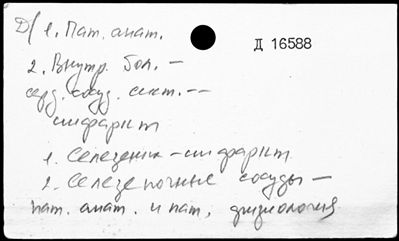 Д/ 1. Пат. анат.
Д 16588
2. Внутр. бол. –
серд. сосуд. сист. --
инфаркт
1. Селезенка – инфаркт
2. Селезеночные сосуды –
пат. анат. и пат. физиология